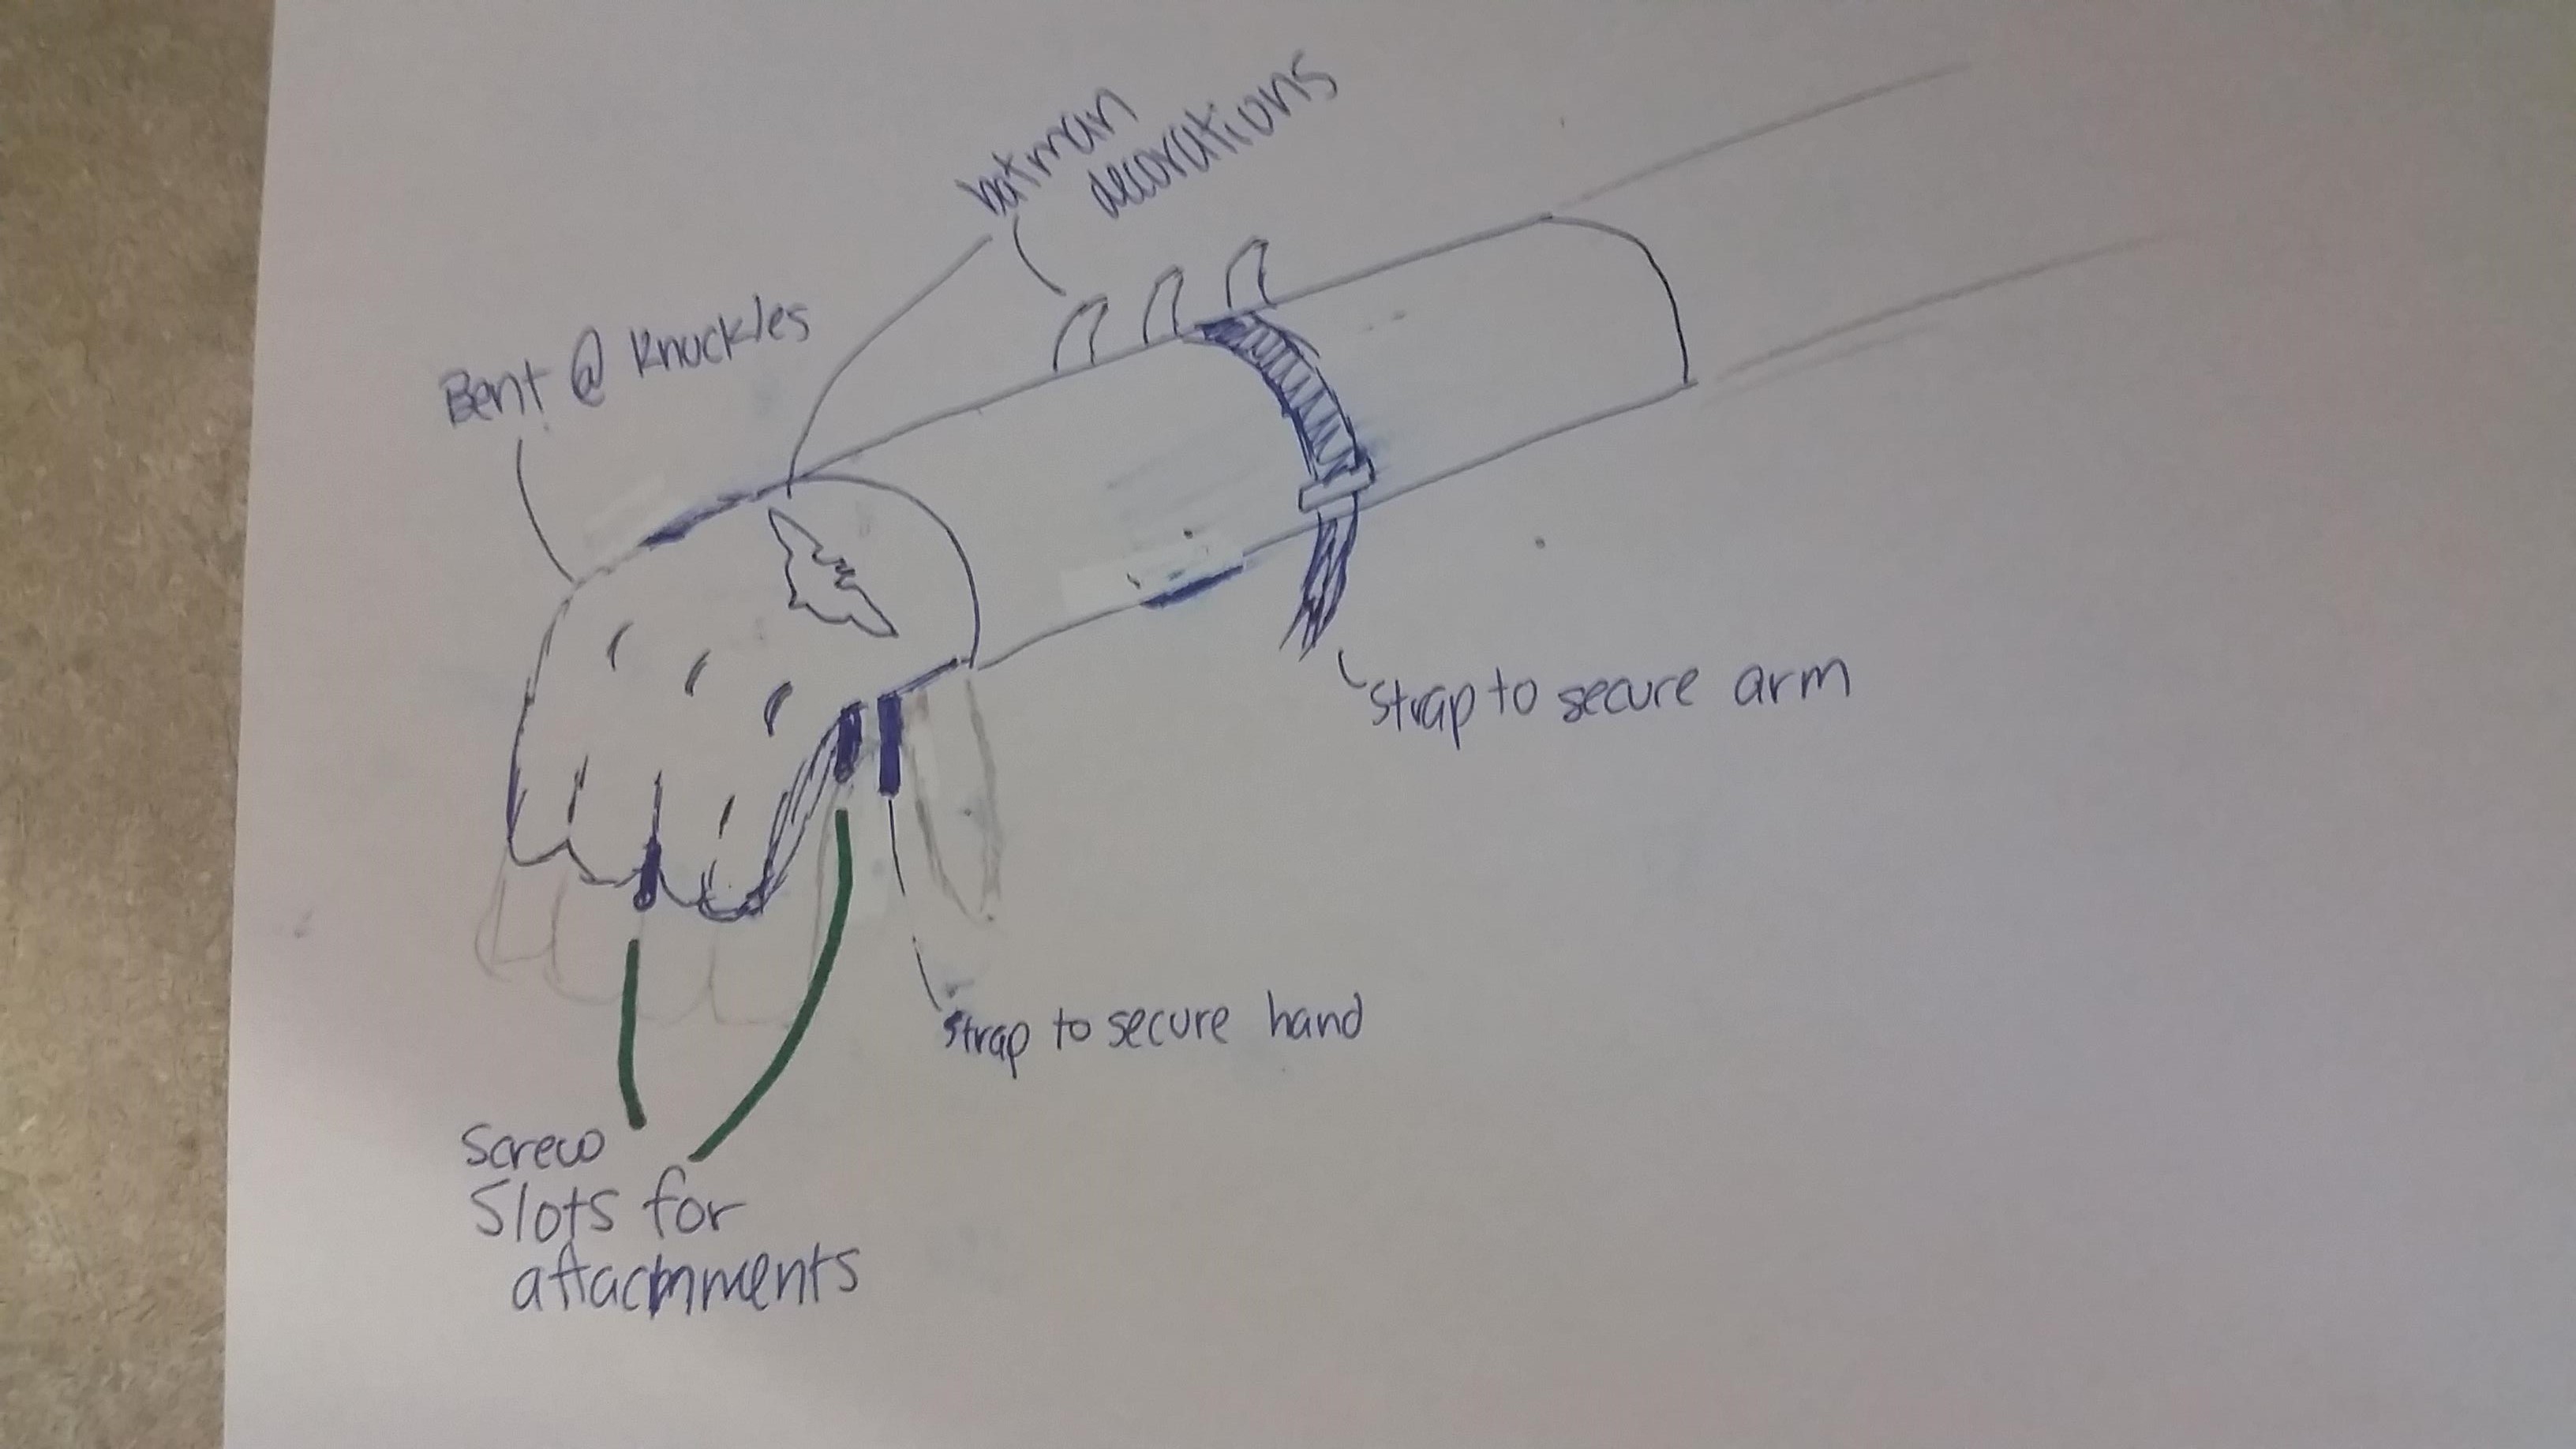 batman
decorations
Bent @ Knuckles
strap to secure arm
strap to secure hand
Screw
Slots for
attachmments